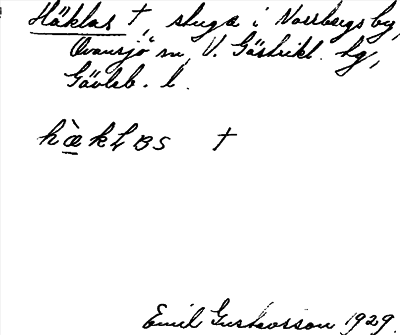 Häklas †, stuga i Norrbergs by,
Ovansjö sn, V. Gästrikl. hg,
Gävleb. l.
hæ̀kLas †
Emil Gustavsson 1929.